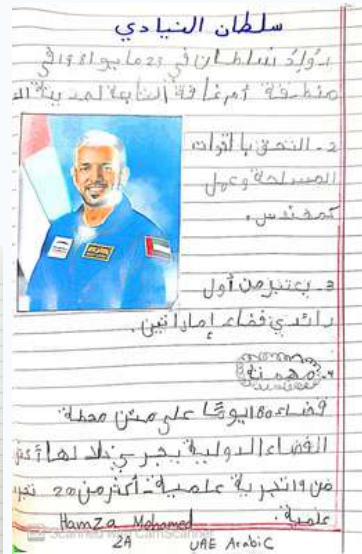 سلطان النيادي
1. وُلِدَ سلطان في 23 مايو 1981 في
منطقة أم غافة التابعة لمدينة
2. التحق باقوات
المسلحة وعمل
كمهندس.
3. يعتبر من أول
رائدي فضاء إماراتين.
4. مهمته
قضاء 180 يومًا على متن محطة
الفضاء الدولية يجري خلالها أكثر
من 19 تجربة علمية - أكثر من 20
علمية.
Hamza Mohamed
Scanned with CamScanner
2A UAE Arabic